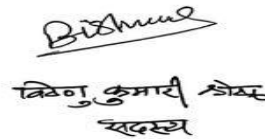 Bishnu
बिष्णु कुमारी श्रेष्ठ
सदस्य